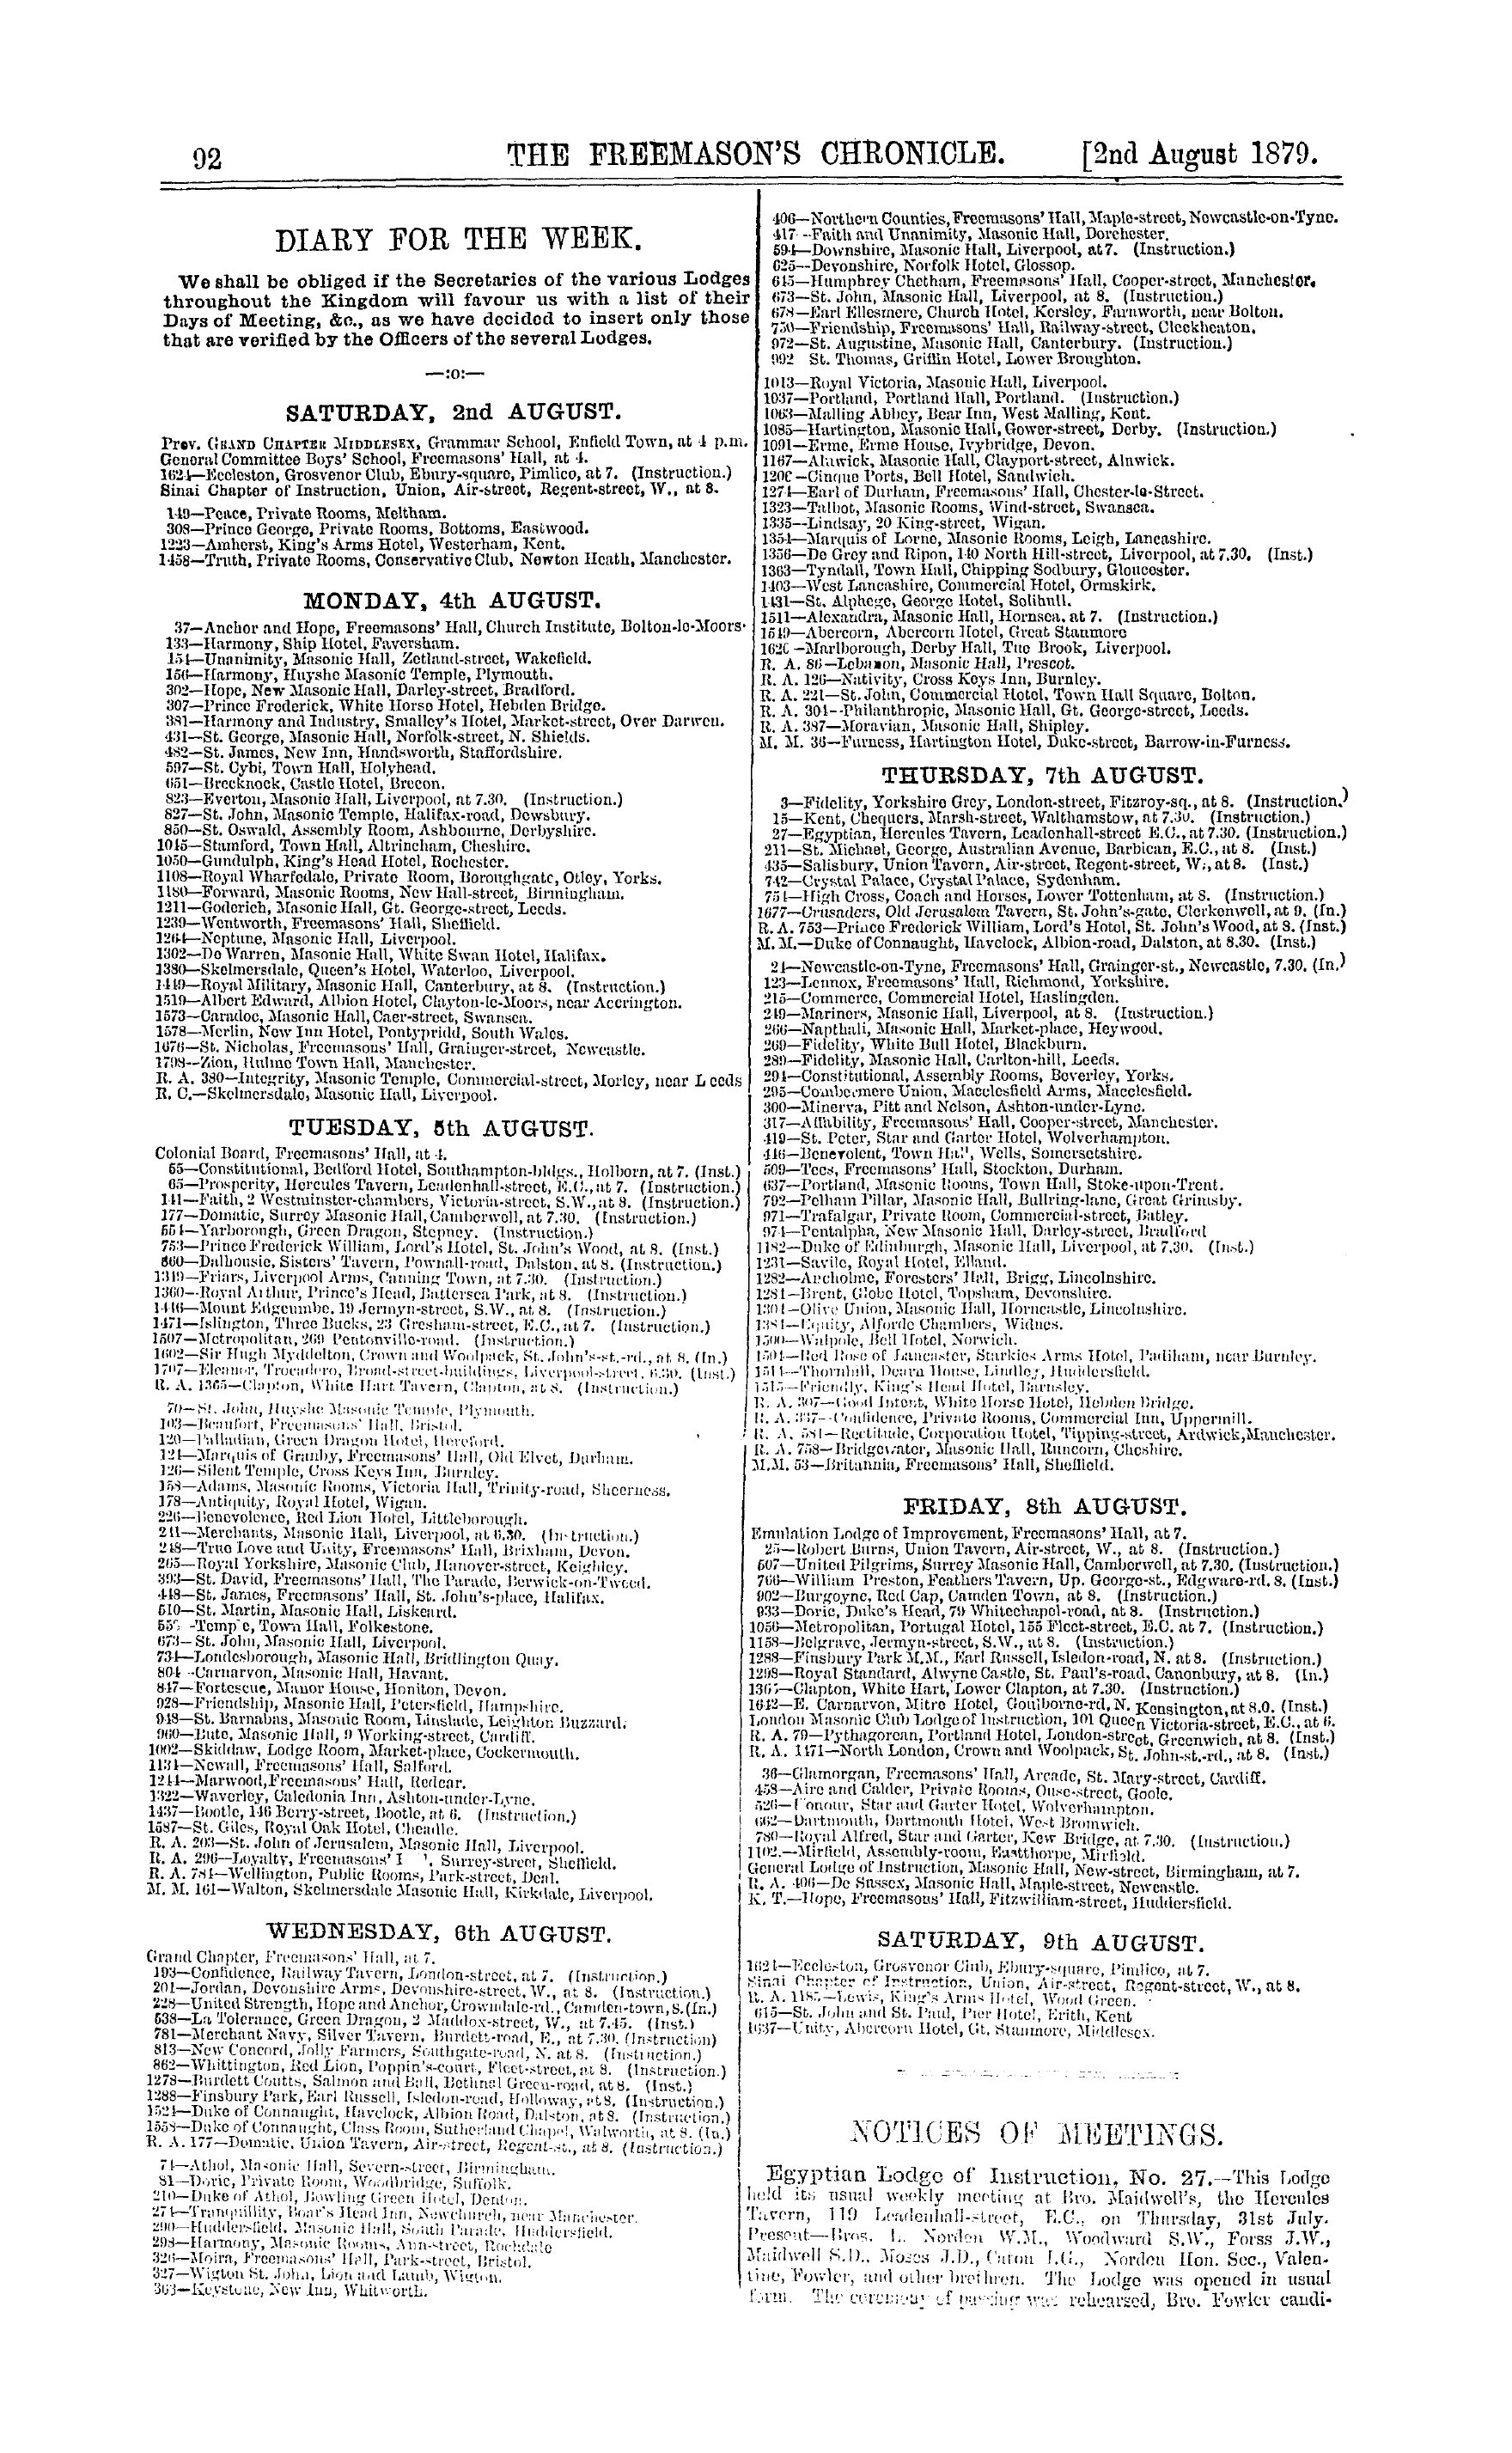 92 THE FREEMASON'S CHRONICLE. [2nd August 1879.
DIARY FOR THE WEEK.
We shall be obliged if the Secretaries of the various Lodges
throughout the Kingdom will favour us with a list of their
Days of Meeting, &c., as we have decided to insert only those
that are verified by the Officers of the several Lodges.
—:o:—
SATURDAY, 2nd AUGUST.
Prov. GRAND CHAPTER MIDDLESEX, Grammar School, Enfield Town, at 4 p.m.
General Committee Boys' School, Freemasons' Hall, at 4.
1624—Eccleston, Grosvenor Club, Ebury-square, Pimlico, at 7. (Instruction.)
Sinai Chapter of Instruction, Union, Air-street, Regent-street, W., at 8.
149—Peace, Private Rooms, Meltham.
308—Prince George, Private Rooms, Bottoms, Eastwood.
1223—Amherst, King's Arms Hotel, Westerham, Kent.
1458—Truth, Private Rooms, Conservative Club, Newton Heath, Manchester.
MONDAY, 4th AUGUST.
37—Anchor and Hope, Freemasons' Hall, Church Institute, Bolton-le-Moors.
133—Harmony, Ship Hotel, Faversham.
154—Unanimity, Masonic Hall, Zetland-street, Wakefield.
156—Harmony, Huyshe Masonic Temple, Plymouth.
302—Hope, New Masonic Hall, Darley-street, Bradford.
307—Prince Frederick, White Horse Hotel, Hebden Bridge.
381—Harmony and Industry, Smalley's Hotel, Market-street, Over Darwen.
431—St. George, Masonic Hall, Norfolk-street, N. Shields.
482—St. James, New Inn, Handsworth, Staffordshire.
597—St. Cybi, Town Hall, Holyhead.
651—Brecknock, Castle Hotel, Brecon.
823—Everton, Masonic Hall, Liverpool, at 7.30. (Instruction.)
827—St. John, Masonic Temple, Halifax-road, Dewsbury.
850—St. Oswald, Assembly Room, Ashbourne, Derbyshire.
1045—Stamford, Town Hall, Altrincham, Cheshire.
1050—Gundulph, King's Head Hotel, Rochester.
1108—Royal Wharfedale, Private Room, Boroughgate, Otley, Yorks.
1180—Forward, Masonic Rooms, New Hall-street, Birmingham.
1211—Goderich, Masonic Hall, Gt. George-street, Leeds.
1239—Wentworth, Freemasons' Hall, Sheffield.
1264—Neptune, Masonic Hall, Liverpool.
1302—De Warren, Masonic Hall, White Swan Hotel, Halifax.
1380—Skelmersdale, Queen's Hotel, Waterloo, Liverpool.
1449—Royal Military, Masonic Hall, Canterbury, at 8. (Instruction.)
1519—Albert Edward, Albion Hotel, Clayton-le-Moors, near Accrington.
1573—Caradoc, Masonic Hall, Caer-street, Swansea.
1578—Merlin, New Inn Hotel, Pontypridd, South Wales.
1676—St. Nicholas, Freemasons' Hall, Grainger-street, Newcastle.
1798—Zion, Hulme Town Hall, Manchester.
R. A. 380—Integrity, Masonic Temple, Commercial-street, Morley, near Leeds
R. C.—Skelmersdale, Masonic Hall, Liverpool.
TUESDAY, 5th AUGUST.
Colonial Board, Freemasons' Hall, at 4.
55—Constitutional, Bedford Hotel, Southampton-bldgs., Holborn, at 7. (Inst.)
65—Prosperity, Hercules Tavern, Leadenhall-street, E.C., at 7. (Instruction.)
141—Faith, 2 Westminster-chambers, Victoria-street, S.W., at 8. (Instruction.)
177—Domatic, Surrey Masonic Hall, Camberwell, at 7.30. (Instruction.)
554—Yarborough, Green Dragon, Stepney. (Instruction.)
753—Prince Frederick William, Lord's Hotel, St. John's Wood, at 8. (Inst.)
860—Dalhousie, Sisters' Tavern, Pownall-road, Dalston, at 8. (Instruction.)
1349—Friars, Liverpool Arms, Canning Town, at 7.30. (Instruction.)
1360—Royal Arthur, Prince's Head, Battersea Park, at 8. (Instruction.)
1446—Mount Edgcumbe, 19 Jermyn-street, S.W., at 8. (Instruction.)
1471—Islington, Three Bucks, 23 Gresham-street, E.C., at 7. (Instruction.)
1507—Metropolitan, 269 Pentonville-road. (Instruction.)
1602—Sir Hugh Myddelton, Crown and Woolpack, St. John's-st.-rd., at 8. (In.)
1707—Eleanor, Trocadero, Broad-street-buildings, Liverpool-street, 6.30. (Inst.)
R. A. 1365—Clapton, White Hart Tavern, Clapton, at 8. (Instruction.)
70—St. John, Huyshe Masonic Temple, Plymouth.
103—Beaufort, Freemasons' Hall, Bristol.
120—Palladian, Green Dragon Hotel, Hereford.
124—Marquis of Granby, Freemasons' Hall, Old Elvet, Durham.
126—Silent Temple, Cross Keys Inn, Burnley.
158—Adams, Masonic Rooms, Victoria Hall, Trinity-road, Sheerness.
178—Antiquity, Royal Hotel, Wigan.
226—Benevolence, Red Lion Hotel, Littleborough.
241—Merchants, Masonic Hall, Liverpool, at 6.30. (Instruction.)
248—True Love and Unity, Freemasons' Hall, Brixham, Devon.
265—Royal Yorkshire, Masonic Club, Hanover-street, Keighley.
393—St. David, Freemasons' Hall, The Parade, Berwick-on-Tweed.
448—St. James, Freemasons' Hall, St. John's-place, Halifax.
510—St. Martin, Masonic Hall, Liskeard.
Temple, Town Hall, Folkestone.
673—St. John, Masonic Hall, Liverpool.
734—Londesborough, Masonic Hall, Bridlington Quay.
804—Carnarvon, Masonic Hall, Havant.
847—Fortescue, Manor House, Honiton, Devon.
928—Friendship, Masonic Hall, Petersfield, Hampshire.
948—St. Barnabas, Masonic Room, Linslade, Leighton Buzzard.
960—Bute, Masonic Hall, 9 Working-street, Cardiff.
1002—Skiddaw, Lodge Room, Market-place, Cockermouth.
1134—Newall, Freemasons' Hall, Salford.
1244—Marwood, Freemasons' Hall, Redcar.
1322—Waverley, Caledonia Inn, Ashton-under-Lyne.
1437—Bootle, 146 Berry-street, Bootle, at 6. (Instruction.)
1587—St. Giles, Royal Oak Hotel, Cheadle.
R. A. 203—St. John of Jerusalem, Masonic Hall, Liverpool.
R. A. 296—Loyalty, Freemasons' Surrey-street, Sheffield.
R. A. 784—Wellington, Public Rooms, Park-street, Deal.
M. M. 161—Walton, Skelmersdale Masonic Hall, Kirkdale, Liverpool.
WEDNESDAY, 6th AUGUST.
Grand Chapter, Freemasons' Hall, at 7.
193—Confidence, Railway Tavern, London-street, at 7. (Instruction.)
201—Jordan, Devonshire Arms, Devonshire-street, W., at 8. (Instruction.)
228—United Strength, Hope and Anchor, Crowndale-rd., Camden-town, 8. (In.)
538—La Tolerance, Green Dragon, 2 Maddox-street, W., at 7.45. (Inst.)
781—Merchant Navy, Silver Tavern, Burdett-road, E., at 7.30. (Instruction)
813—New Concord, Jolly Farmers, Southgate-road, N. at 8. (Instruction.)
862—Whittington, Red Lion, Poppin's-court, Fleet-street, at 8. (Instruction.)
1278—Burdett Coutts, Salmon and Ball, Bethnal Green-road, at 8. (Inst.)
1288—Finsbury Park, Earl Russell, Isledon-road, Holloway, at 8. (Instruction.)
1524—Duke of Connaught, Havelock, Albion Road, Dalston, at 8. (Instruction.)
1558—Duke of Connaught, Class Room, Sutherland Chapel, Walworth, at 8. (In.)
R. A. 177—Domatic, Union Tavern, Air-street, Regent-st., at 8. (Instruction.)
74—Athol, Masonic Hall, Severn-street, Birmingham.
81—Doric, Private Room, Woodbridge, Suffolk.
210—Duke of Athol, Bowling Green Hotel, Denton.
274—Tranquillity, Boar's Head Inn, Newchurch, near Manchester.
290—Huddersfield, Masonic Hall, South Parade, Huddersfield.
298—Harmony, Masonic Rooms, Ann-street, Rochdale
326—Moira, Freemasons' Hall, Park-street, Bristol.
327—Wigton St. John, Lion and Lamb, Wigton.
363—Keystone, New Inn, Whitworth.
406—Northern Counties, Freemasons' Hall, Maple-street, Newcastle-on-Tyne.
417—Faith and Unanimity, Masonic Hall, Dorchester.
594—Downshire, Masonic Hall, Liverpool, at 7. (Instruction.)
625—Devonshire, Norfolk Hotel, Glossop.
645—Humphrey Chetham, Freemasons' Hall, Cooper-street, Manchester.
673—St. John, Masonic Hall, Liverpool, at 8. (Instruction.)
678—Earl Ellesmere, Church Hotel, Kersley, Farnworth, near Bolton.
750—Friendship, Freemasons' Hall, Railway-street, Cleckheaton.
972—St. Augustine, Masonic Hall, Canterbury. (Instruction.)
992 St. Thomas, Griffin Hotel, Lower Broughton.
1013—Royal Victoria, Masonic Hall, Liverpool.
1037—Portland, Portland Hall, Portland. (Instruction.)
1063—Malling Abbey, Bear Inn, West Malling, Kent.
1085—Hartington, Masonic Hall, Gower-street, Derby. (Instruction.)
1091—Erme, Erme House, Ivybridge, Devon.
1167—Alnwick, Masonic Hall, Clayport-street, Alnwick.
1206—Cinque Ports, Bell Hotel, Sandwich.
1274—Earl of Durham, Freemasons' Hall, Chester-le-Street.
1323—Talbot, Masonic Rooms, Wind-street, Swansea.
1335—Lindsay, 20 King-street, Wigan.
1354—Marquis of Lorne, Masonic Rooms, Leigh, Lancashire.
1356—De Grey and Ripon, 140 North Hill-street, Liverpool, at 7.30. (Inst.)
1363—Tyndall, Town Hall, Chipping Sodbury, Gloucester.
1403—West Lancashire, Commercial Hotel, Ormskirk.
1431—St. Alphege, George Hotel, Solihull.
1511—Alexandra, Masonic Hall, Hornsea, at 7. (Instruction.)
1549—Abercorn, Abercorn Hotel, Great Stanmore
1620—Marlborough, Derby Hall, Tue Brook, Liverpool.
R. A. 86—Lebanon, Masonic Hall, Prescot.
R. A. 126—Nativity, Cross Keys Inn, Burnley.
R. A. 221—St. John, Commercial Hotel, Town Hall Square, Bolton.
R. A. 304—Philanthropic, Masonic Hall, Gt. George-street, Leeds.
R. A. 387—Moravian, Masonic Hall, Shipley.
M. M. 36—Furness, Hartington Hotel, Duke-street, Barrow-in-Furness.
THURSDAY, 7th AUGUST.
3—Fidelity, Yorkshire Grey, London-street, Fitzroy-sq., at 8. (Instruction.)
15—Kent, Chequers, Marsh-street, Walthamstow, at 7.30. (Instruction.)
27—Egyptian, Hercules Tavern, Leadenhall-street E.C., at 7.30. (Instruction.)
211—St. Michael, George, Australian Avenue, Barbican, E.C., at 8. (Inst.)
435—Salisbury, Union Tavern, Air-street, Regent-street, W., at 8. (Inst.)
742—Crystal Palace, Crystal Palace, Sydenham.
754—High Cross, Coach and Horses, Lower Tottenham, at 8. (Instruction.)
1677—Crusaders, Old Jerusalem Tavern, St. John's-gate, Clerkenwell, at 9. (In.)
R. A. 753—Prince Frederick William, Lord's Hotel, St. John's Wood, at 8. (Inst.)
M. M.—Duke of Connaught, Havelock, Albion-road, Dalston, at 8.30. (Inst.)
24—Newcastle-on-Tyne, Freemasons' Hall, Grainger-st., Newcastle, 7.30. (In.)
123—Lennox, Freemasons' Hall, Richmond, Yorkshire.
215—Commerce, Commercial Hotel, Haslingden.
249—Mariners, Masonic Hall, Liverpool, at 8. (Instruction.)
266—Napthali, Masonic Hall, Market-place, Heywood.
269—Fidelity, White Bull Hotel, Blackburn.
289—Fidelity, Masonic Hall, Carlton-hill, Leeds.
294—Constitutional, Assembly Rooms, Beverley, Yorks.
295—Combermere Union, Macclesfield Arms, Macclesfield.
300—Minerva, Pitt and Nelson, Ashton-under-Lyne.
317—Affability, Freemasons' Hall, Cooper-street, Manchester.
419—St. Peter, Star and Garter Hotel, Wolverhampton.
446—Benevolent, Town Hall, Wells, Somersetshire.
509—Tees, Freemasons' Hall, Stockton, Durham.
637—Portland, Masonic Rooms, Town Hall, Stoke-upon-Trent.
792—Pelham Pillar, Masonic Hall, Bullring-lane, Great Grimsby.
971—Trafalgar, Private Room, Commercial-street, Batley.
974—Pentalpha, New Masonic Hall, Darley-street, Bradford
1182—Duke of Edinburgh, Masonic Hall, Liverpool, at 7.30. (Inst.)
1231—Savile, Royal Hotel, Elland.
1282—Ancholme, Foresters' Hall, Brigg, Lincolnshire.
1284—Brent, Globe Hotel, Topsham, Devonshire.
1304—Olive Union, Masonic Hall, Horncastle, Lincolnshire.
1384—Equity, Alforde Chambers, Widnes.
1500—Walpole, Bell Hotel, Norwich.
1504—Red Rose of Lancaster, Starkies Arms Hotel, Padiham, near Burnley.
1514—Thornhill, Dearn House, Lindley, Huddersfield.
1515—Friendly, King's Head Hotel, Barnsley.
R. A. 307—Good Intent, White Horse Hotel, Hebden Bridge.
R. A. 337—Confidence, Private Rooms, Commercial Inn, Uppermill.
R. A. 581—Rectitude, Corporation Hotel, Tipping-street, Ardwick, Manchester.
R. A. 758—Bridgewater, Masonic Hall, Runcorn, Cheshire.
M.M. 53—Britannia, Freemasons' Hall, Sheffield.
FRIDAY, 8th AUGUST.
Emulation Lodge of Improvement, Freemasons' Hall, at 7.
25—Robert Burns, Union Tavern, Air-street, W., at 8. (Instruction.)
507—United Pilgrims, Surrey Masonic Hall, Camberwell, at 7.30. (Instruction.)
766—William Preston, Feathers Tavern, Up. George-st., Edgware-rd. 8. (Inst.)
902—Burgoyne, Red Cap, Camden Town, at 8. (Instruction.)
933—Doric, Duke's Head, 79 Whitechapel-road, at 8. (Instruction.)
1056—Metropolitan, Portugal Hotel, 155 Fleet-street, E.C. at 7. (Instruction.)
1158—Belgrave, Jermyn-street, S.W., at 8. (Instruction.)
1288—Finsbury Park M.M., Earl Russell, Isledon-road, N. at 8. (Instruction.)
1298—Royal Standard, Alwyne Castle, St. Paul's-road, Canonbury, at 8. (In.)
1365—Clapton, White Hart, Lower Clapton, at 7.30. (Instruction.)
1642—E. Carnarvon, Mitre Hotel, Goulborne-rd, N. Kensington, at 8.0. (Inst.)
London Masonic Club Lodge of Instruction, 101 Queen Victoria-street, E.C., at 6.
R. A. 79—Pythagorean, Portland Hotel, London-street, Greenwich, at 8. (Inst.)
R. A. 1471—North London, Crown and Woolpack, St. John-st.-rd., at 8. (Inst.)
36—Glamorgan, Freemasons' Hall, Arcade, St. Mary-street, Cardiff.
458—Aire and Calder, Private Rooms, Ouse-street, Goole.
526—Honour, Star and Garter Hotel, Wolverhampton.
662—Dartmouth, Dartmouth Hotel, West Bromwich.
780—Royal Alfred, Star and Garter, Kew Bridge, at 7.30. (Instruction.)
1102.—Mirfield, Assembly-room, Eastthorpe, Mirfield.
General Lodge of Instruction, Masonic Hall, New-street, Birmingham, at 7.
R. A. 406—De Sussex, Masonic Hall, Maple-street, Newcastle.
K. T.—Hope, Freemasons' Hall, Fitzwilliam-street, Huddersfield.
SATURDAY, 9th AUGUST.
1624—Eccleston, Grosvenor Club, Ebury-square, Pimlico, at 7.
Sinai Chapter of Instruction, Union, Air-street, Regent-street, W., at 8.
R. A. 1185—Lewis, King's Arms Hotel, Wood Green.
615—St. John and St. Paul, Pier Hotel, Erith, Kent
1637—Unity, Abercorn Hotel, Gt. Stanmore, Middlesex.
NOTICES OF MEETINGS.
Egyptian Lodge of Instruction, No. 27.—This Lodge
held its usual weekly meeting at Bro. Maidwell's, the Hercules
Tavern, 119 Leadenhall-street, E.C., on Thursday, 31st July.
Present—Bros. L. Norden W.M., Woodward S.W., Forss J.W.,
Maidwell S.D., Moses J.D., Caton I.G., Norden Hon. Sec., Valen-
tine, Fowler, and other brethren. The Lodge was opened in usual
form. The ceremony of passing was rehearsed, Bro. Fowler candi-